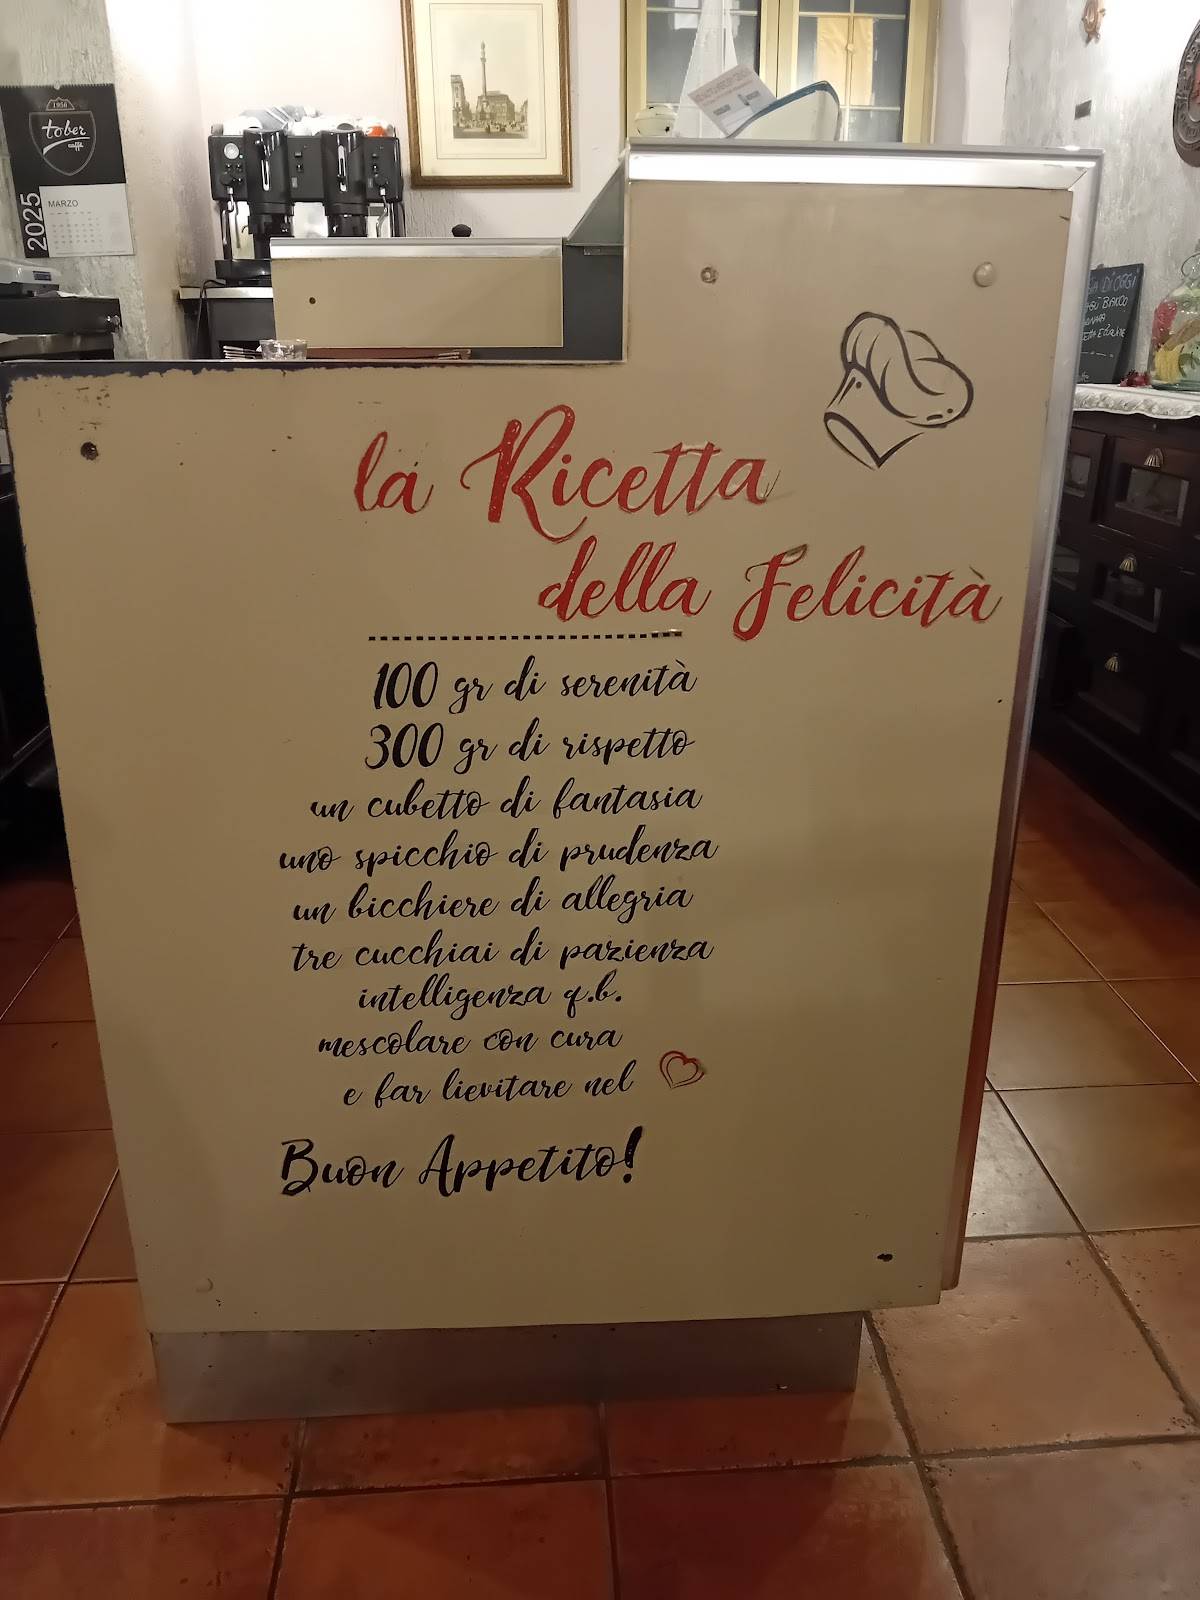 1956
tober
caffè
2025
MARZO
DI OGGI
la Ricetta
della Felicità
100 gr di serenità
300 gr di rispetto
un cubetto di fantasia
uno spicchio di prudenza
un bicchiere di allegria
tre cucchiai di pazienza
intelligenza q.b.
mescolare con cura
e far lievitare nel
Buon Appetito!